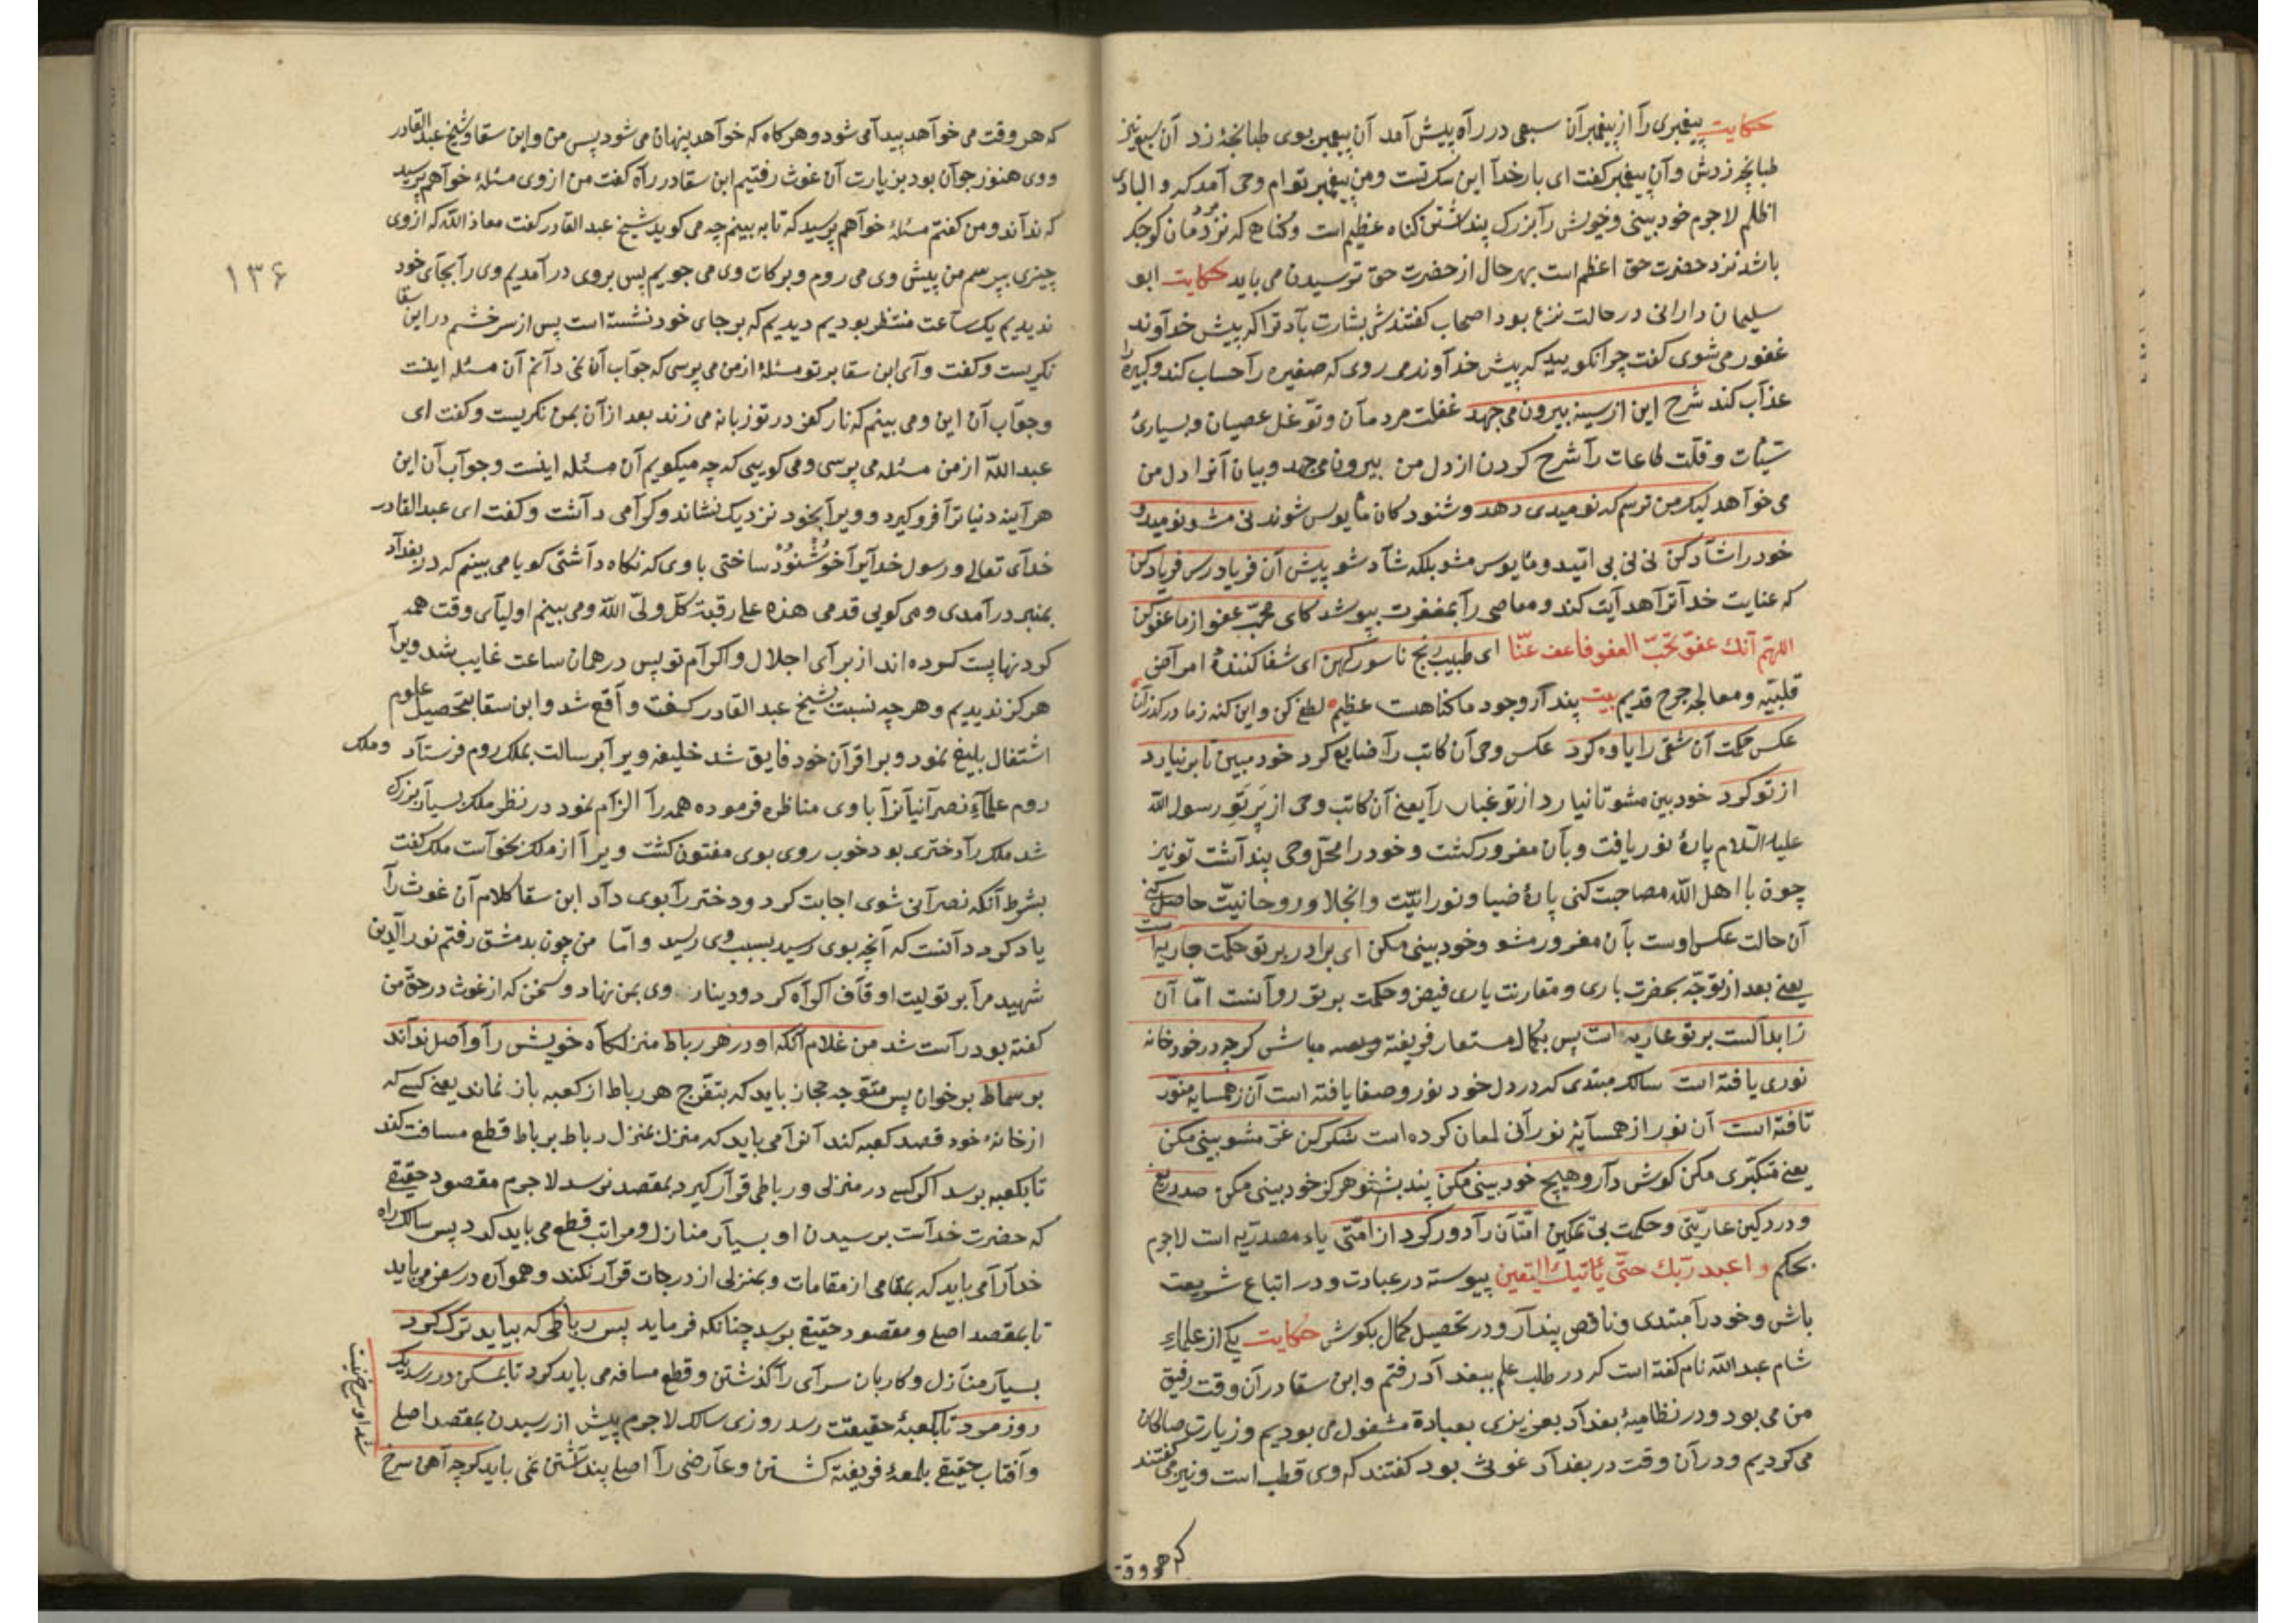 حکایت پیغمبری را از پیغمبران سبعی در راه پیش آمد آن پیغمبر بوی طبانچهٔ زد آن سبع نیز
طبانچه زدش و آن پیغمبر گفت ای بار خدا این سک تست و من پیغمبر توام وحی آمد که و البادی
اظلم لاجرم خود بینی و خویش را بزرک پنداشتن کناه عظیم است و کناهی که نزد مردمان کوچک
باشد نزد حضرت حق اعظم است بهر حال از حضرت حق ترسیدن می باید حکایت ابو
سلیمان دارانی در حالت نزع بود اصحاب کفتندش بشارت باد ترا که پیش خداوند
غفور می شوی کفت چرا نکویید که پیش خداوند می روی که صغیره را حساب کند و کبیره را
عذاب کند شرح این از سینه بیرون می جهد غفلت مردمان و توغل عصیان و بسیاریٔ
سیئات و قلت طاعات را شرح کردن از دل من بیرون می جهد و بیان آنرا دل من
می خواهد لیک من ترسم که نومیدی دهد و شنودکان مایوس شوند نی مشو نومید و
خود را شاد کن نی نی بی امید و مایوس مشو بلکه شاد شو پیش آن فریاد رس فریاد کن
که عنایت خدا ترا هدایت کند و معاصی را بمغفرت بپوشد کای محب عفو از ما عفو کن
اللهم انك عفو تحب العفو فاعف عنا ای طبیب رنج ناسور کهن ای شفا کنندهٔ امراض
قلبیه و معالج جرح قدیم بیت پندار وجود ما کناهست عظیم لطفی کن و این کنه ز ما در کذران
عکس حکمت آن شقی را یاوه کرد عکس وحی آن کاتب را ضایع کرد خود مبین تا بر نیارد
از تو کرد خود بین مشو تا نیارد از تو غبار را یعنی آن کاتب وحی از پرتو رسول الله
علیه السلام پارهٔ نور یافت و بآن مغرور کشت و خود را محل وحی پنداشت تو نیز
چون با اهل الله مصاحبت کنی پارهٔ ضیا و نورانیت و انجلا و روحانیت حاصل کنی
آن حالت عکس اوست بآن مغرور مشو و خود بینی مکن ای برادر بر تو حکمت جاریه است
یعنی بعد از توجه بحضرت باری و مقارنت یاری فیض و حکمت بر تو روانست اما آن
ز ابدالست بر تو عاریه است پس بکمال مستعار فریفته مباش کرچه در خود خانه
نوری یافته است سالک مبتدی که در دل خود نور و صفا یافته است آن ز همسایه منور
تافته است آن نور از همسایهٔ نورانی لمعان کرده است شکر کن غره مشو بینی مکن
یعنی متکبری مکن کوش دار و هیچ خود بینی مکن پند بشنو هرکز خود بینی مکن صد دریغ
و درد کین عاریتی و حکمت بی تمکین امتان را دور کرد از امتی یاء مصدریه است لاجرم
بحکم و اعبد ربك حتی یأتیك الیقین پیوسته در عبادت و در اتباع شریعت
باش و خود را مبتدی و ناقص پندار و در تحصیل کمال بکوش حکایت یکی از علماء
شام عبد الله نام کفته است که در طلب علم ببغداد رفتم و ابن سقا در آن وقت رفیق
من می بود و در نظامیهٔ بغداد بعبادة مشغول می بودیم و زیارت صالحان
می کردیم و در آن وقت در بغداد غوثی بود کفتند که وی قطب است و نیز می کفتند
که هر وقت
که هر وقت می خواهد پیدا می شود و هر کاه که خواهد پنهان می شود پس من و ابن سقا و شیخ عبد القادر
و وی هنوز جوان بود بزیارت آن غوث رفتیم ابن سقا در راه کفت من از وی مسئلهٔ خواهم پرسید
که نداند و من کفتم مسئلهٔ خواهم پرسید که تا به بینم چه می کوید شیخ عبد القادر کفت معاذ الله که از وی
چیزی بپرسم من پیش وی می روم و برکات وی می جویم پس بر وی در آمدیم وی را بجای خود
ندیدیم یک ساعت منتظر بودیم دیدیم که بر جای خود نشسته است پس از سر خشم در ابن سقا
نکریست و کفت وای ابن سقا بر تو مسئلهٔ از من می پرسی که جواب آن نمی دانم آن مسئله اینست
و جواب آن این و می بینم که نار کفر در تو زبانه می زند بعد از آن بمن نکریست و کفت ای
عبد الله از من مسئله می پرسی و می کویی که چه میکویم آن مسئله اینست و جواب آن این
هر آینه دنیا ترا فرو کیرد و ویرا بخود نزدیک نشاند و کرامی داشت و کفت ای عبد القادر
خدای تعالی و رسول خدایرا خوشنود ساختی با وی که نکاه داشتی کویا می بینم که در بغداد
بمنبر در آمدی و می کویی قدمی هذه علی رقبة کل ولی الله و می بینم اولیای وقت همه
کردنها پست کرده اند از برای اجلال و اکرام تو پس در همان ساعت غایب شد ویرا
هرکز ندیدیم و هر چه نسبت شیخ عبد القادر کفت واقع شد و ابن سقا بتحصیل علوم
اشتغال بلیغ نمود و بر اقران خود فایق شد خلیفه ویرا برسالت بملک روم فرستاد و ملک
روم علماء نصرانیانرا با وی مناظره فرموده همه را الزام نمود در نظر ملک بسیار بزرک
شد ملک را دختری بود خوب روی بوی مفتون کشت ویرا از ملک بخواست ملک کفت
بشرط آنکه نصرانی شوی اجابت کرد و دختر را بوی داد ابن سقا کلام آن غوث را
یاد کرد دانست که آنچه بوی رسید بسبب وی رسید و اما من چون بدمشق رفتم نور الدین
شهید مرا بر تولیت اوقاف اکراه کرد و دینار وی بمن نهاد و سخن که از غوث در حق من
کفته بود راست شد من غلام آنکه او در هر رباط منزلکاه خویش را واصل نداند
بر سماط بر خوان پس متوجه حجاز باید که بتفرج هر رباط از کعبه باز نماند یعنی کسی که
از خانهٔ خود قصد کعبه کند آنرا می باید که منزل بمنزل رباط برباط قطع مسافت کند
تا بکعبه برسد اکر کسی در منزلی و رباطی قرار کیرد بمقصد نرسد لاجرم مقصود حقیقی
که حضرت خداست برسیدن او بسیار منازل و مراتب قطع می باید کرد پس سالک راه
خدا را می باید که بمقامی از مقامات و بمنزلی از درجات قرار نکند و همواره در سفر می باید
تا بمقصد اصلی و مقصود حقیقی برسد چنانکه فرماید پس رباطی که بباید ترک کرد
بسیار منازل و کاربان سرای را کذشتن و قطع مسافه می باید کرد تا بمسکن در رسد یک
روز مرد تا بکعبهٔ حقیقت رسد روزی سالک لاجرم پیش از رسیدن بمقصد اصلی
و آفتاب حقیقی بلمعهٔ فریفته کشتن و عارضی را اصلی پنداشتن نمی باید کرچه آهن سرخ
شد او سرخ نیست
۱۳۶